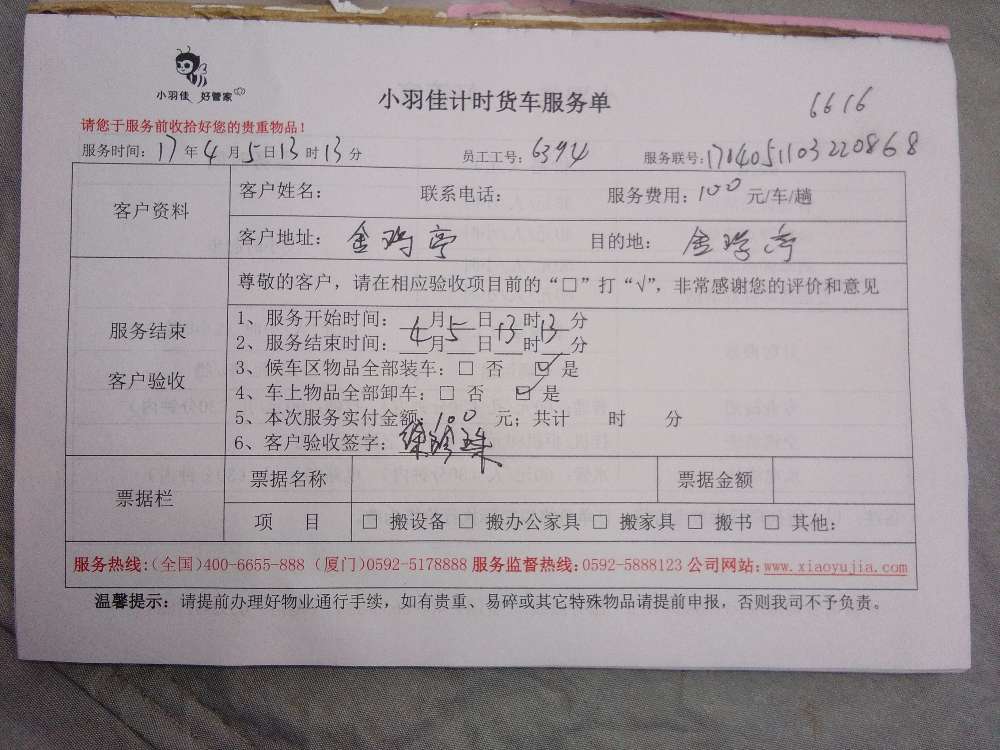 小羽佳 好管家
小羽佳计时货车服务单
6616
请您于服务前收拾好您的贵重物品！
服务时间：17年4月5日13时13分 员工工号：6394 服务联号：1704051103220868
客户资料
客户姓名： 联系电话： 服务费用：100元/车/趟
客户地址：金鸡亭 目的地：金鸡亭
服务结束
客户验收
尊敬的客户，请在相应验收项目前的“□”打“√”，非常感谢您的评价和意见
1、服务开始时间：4月5日13时13分
2、服务结束时间：___月___日___时___分
3、候车区物品全部装车：□ 否 ☑ 是
4、车上物品全部卸车：□ 否 ☑ 是
5、本次服务实付金额：100元；共计 时 分
6、客户验收签字：
票据栏
票据名称 票据金额
项 目 □ 搬设备 □ 搬办公家具 □ 搬家具 □ 搬书 □ 其他：
服务热线：(全国)400-6655-888 (厦门)0592-5178888 服务监督热线：0592-5888123 公司网站：www.xiaoyujia.com
温馨提示：请提前办理好物业通行手续，如有贵重、易碎或其它特殊物品请提前申报，否则我司不予负责。